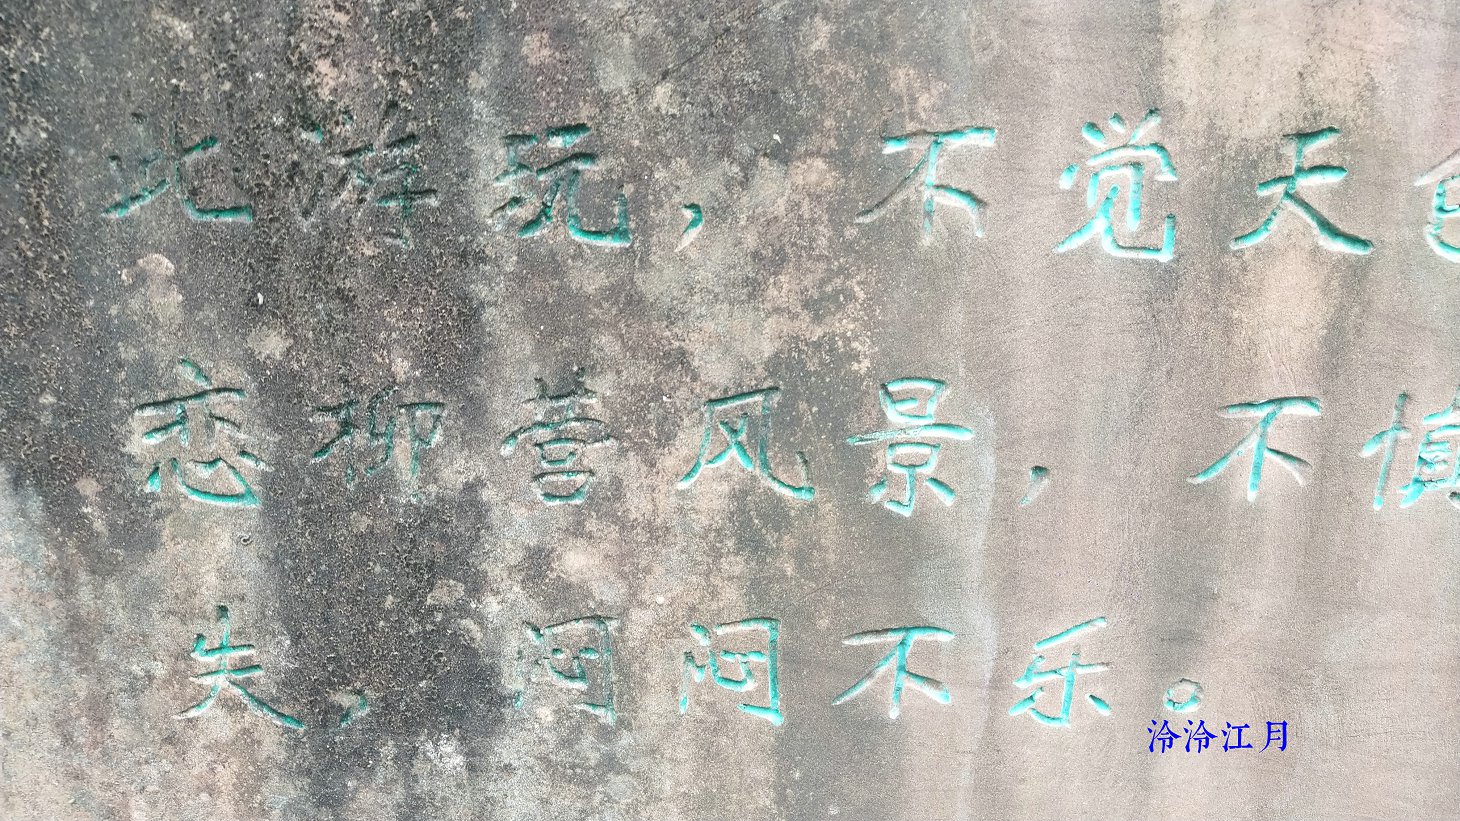 此游玩，不觉天色
恋柳营风景，不慎
失，闷闷不乐。
泠泠江月